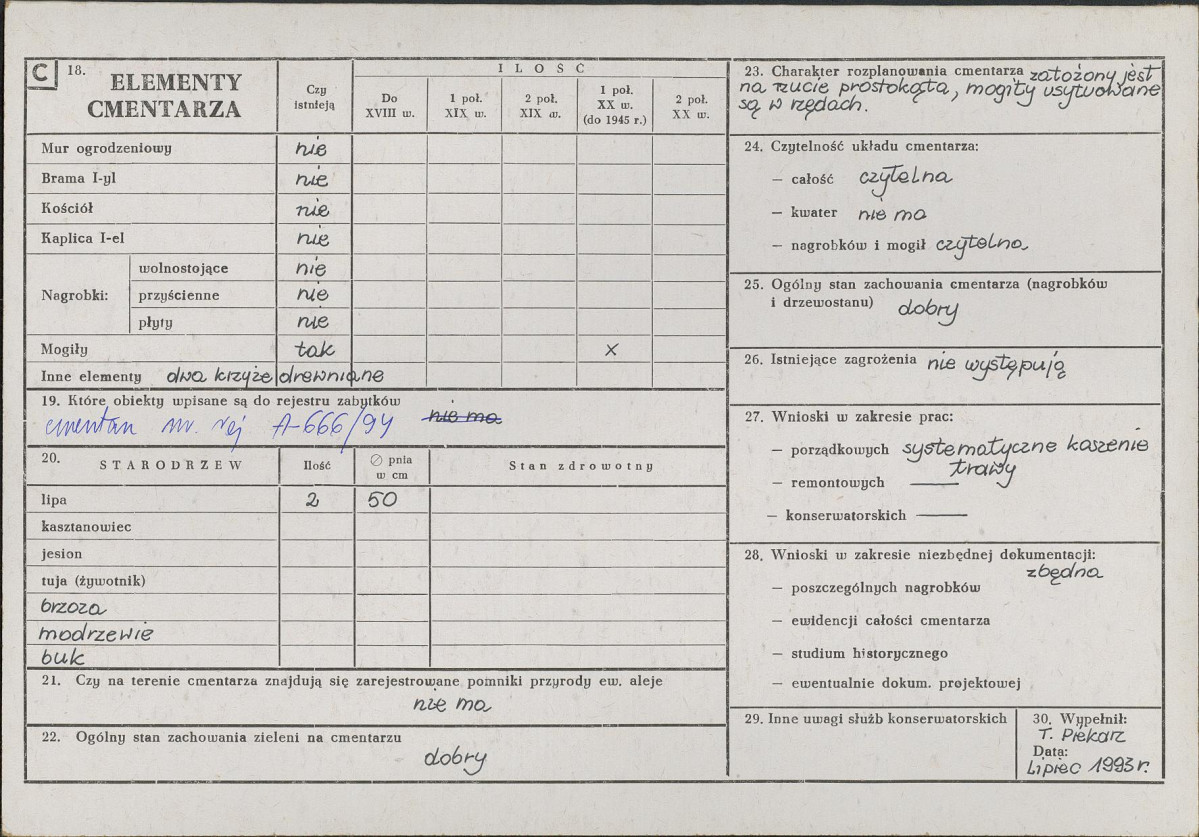 C
18. ELEMENTY CMENTARZA
Czy istnieją
ILOŚĆ
Do XVIII w.
1 poł. XIX w.
2 poł. XIX w.
1 poł. XX w. (do 1945 r.)
2 poł. XX w.
Mur ogrodzeniowy nie
Brama I-yl nie
Kościół nie
Kaplica I-el nie
Nagrobki: wolnostojące nie
przyścienne nie
płyty nie
Mogiły tak x
Inne elementy dwa krzyże drewniane
19. Które obiekty wpisane są do rejestru zabytków
cmentarz nr. rej A-666/94 nie ma
20. STARODRZEW Ilość ∅ pnia w cm Stan zdrowotny
lipa 2 50
kasztanowiec
jesion
tuja (żywotnik)
brzoza
modrzewie
buk
21. Czy na terenie cmentarza znajdują się zarejestrowane pomniki przyrody ew. aleje
nie ma
22. Ogólny stan zachowania zieleni na cmentarzu
dobry
23. Charakter rozplanowania cmentarza założony jest
na rzucie prostokąta, mogiły usytuowane
są w rzędach.
24. Czytelność układu cmentarza:
— całość czytelna
— kwater nie ma
— nagrobków i mogił czytelna
25. Ogólny stan zachowania cmentarza (nagrobków
i drzewostanu) dobry
26. Istniejące zagrożenia nie występują
27. Wnioski w zakresie prac:
— porządkowych systematyczne koszenie
trawy
— remontowych —
— konserwatorskich —
28. Wnioski w zakresie niezbędnej dokumentacji:
zbędna
— poszczególnych nagrobków
— ewidencji całości cmentarza
— studium historycznego
— ewentualnie dokum. projektowej
29. Inne uwagi służb konserwatorskich
30. Wypełnił:
T. Piekarz
Data:
Lipiec 1993 r.